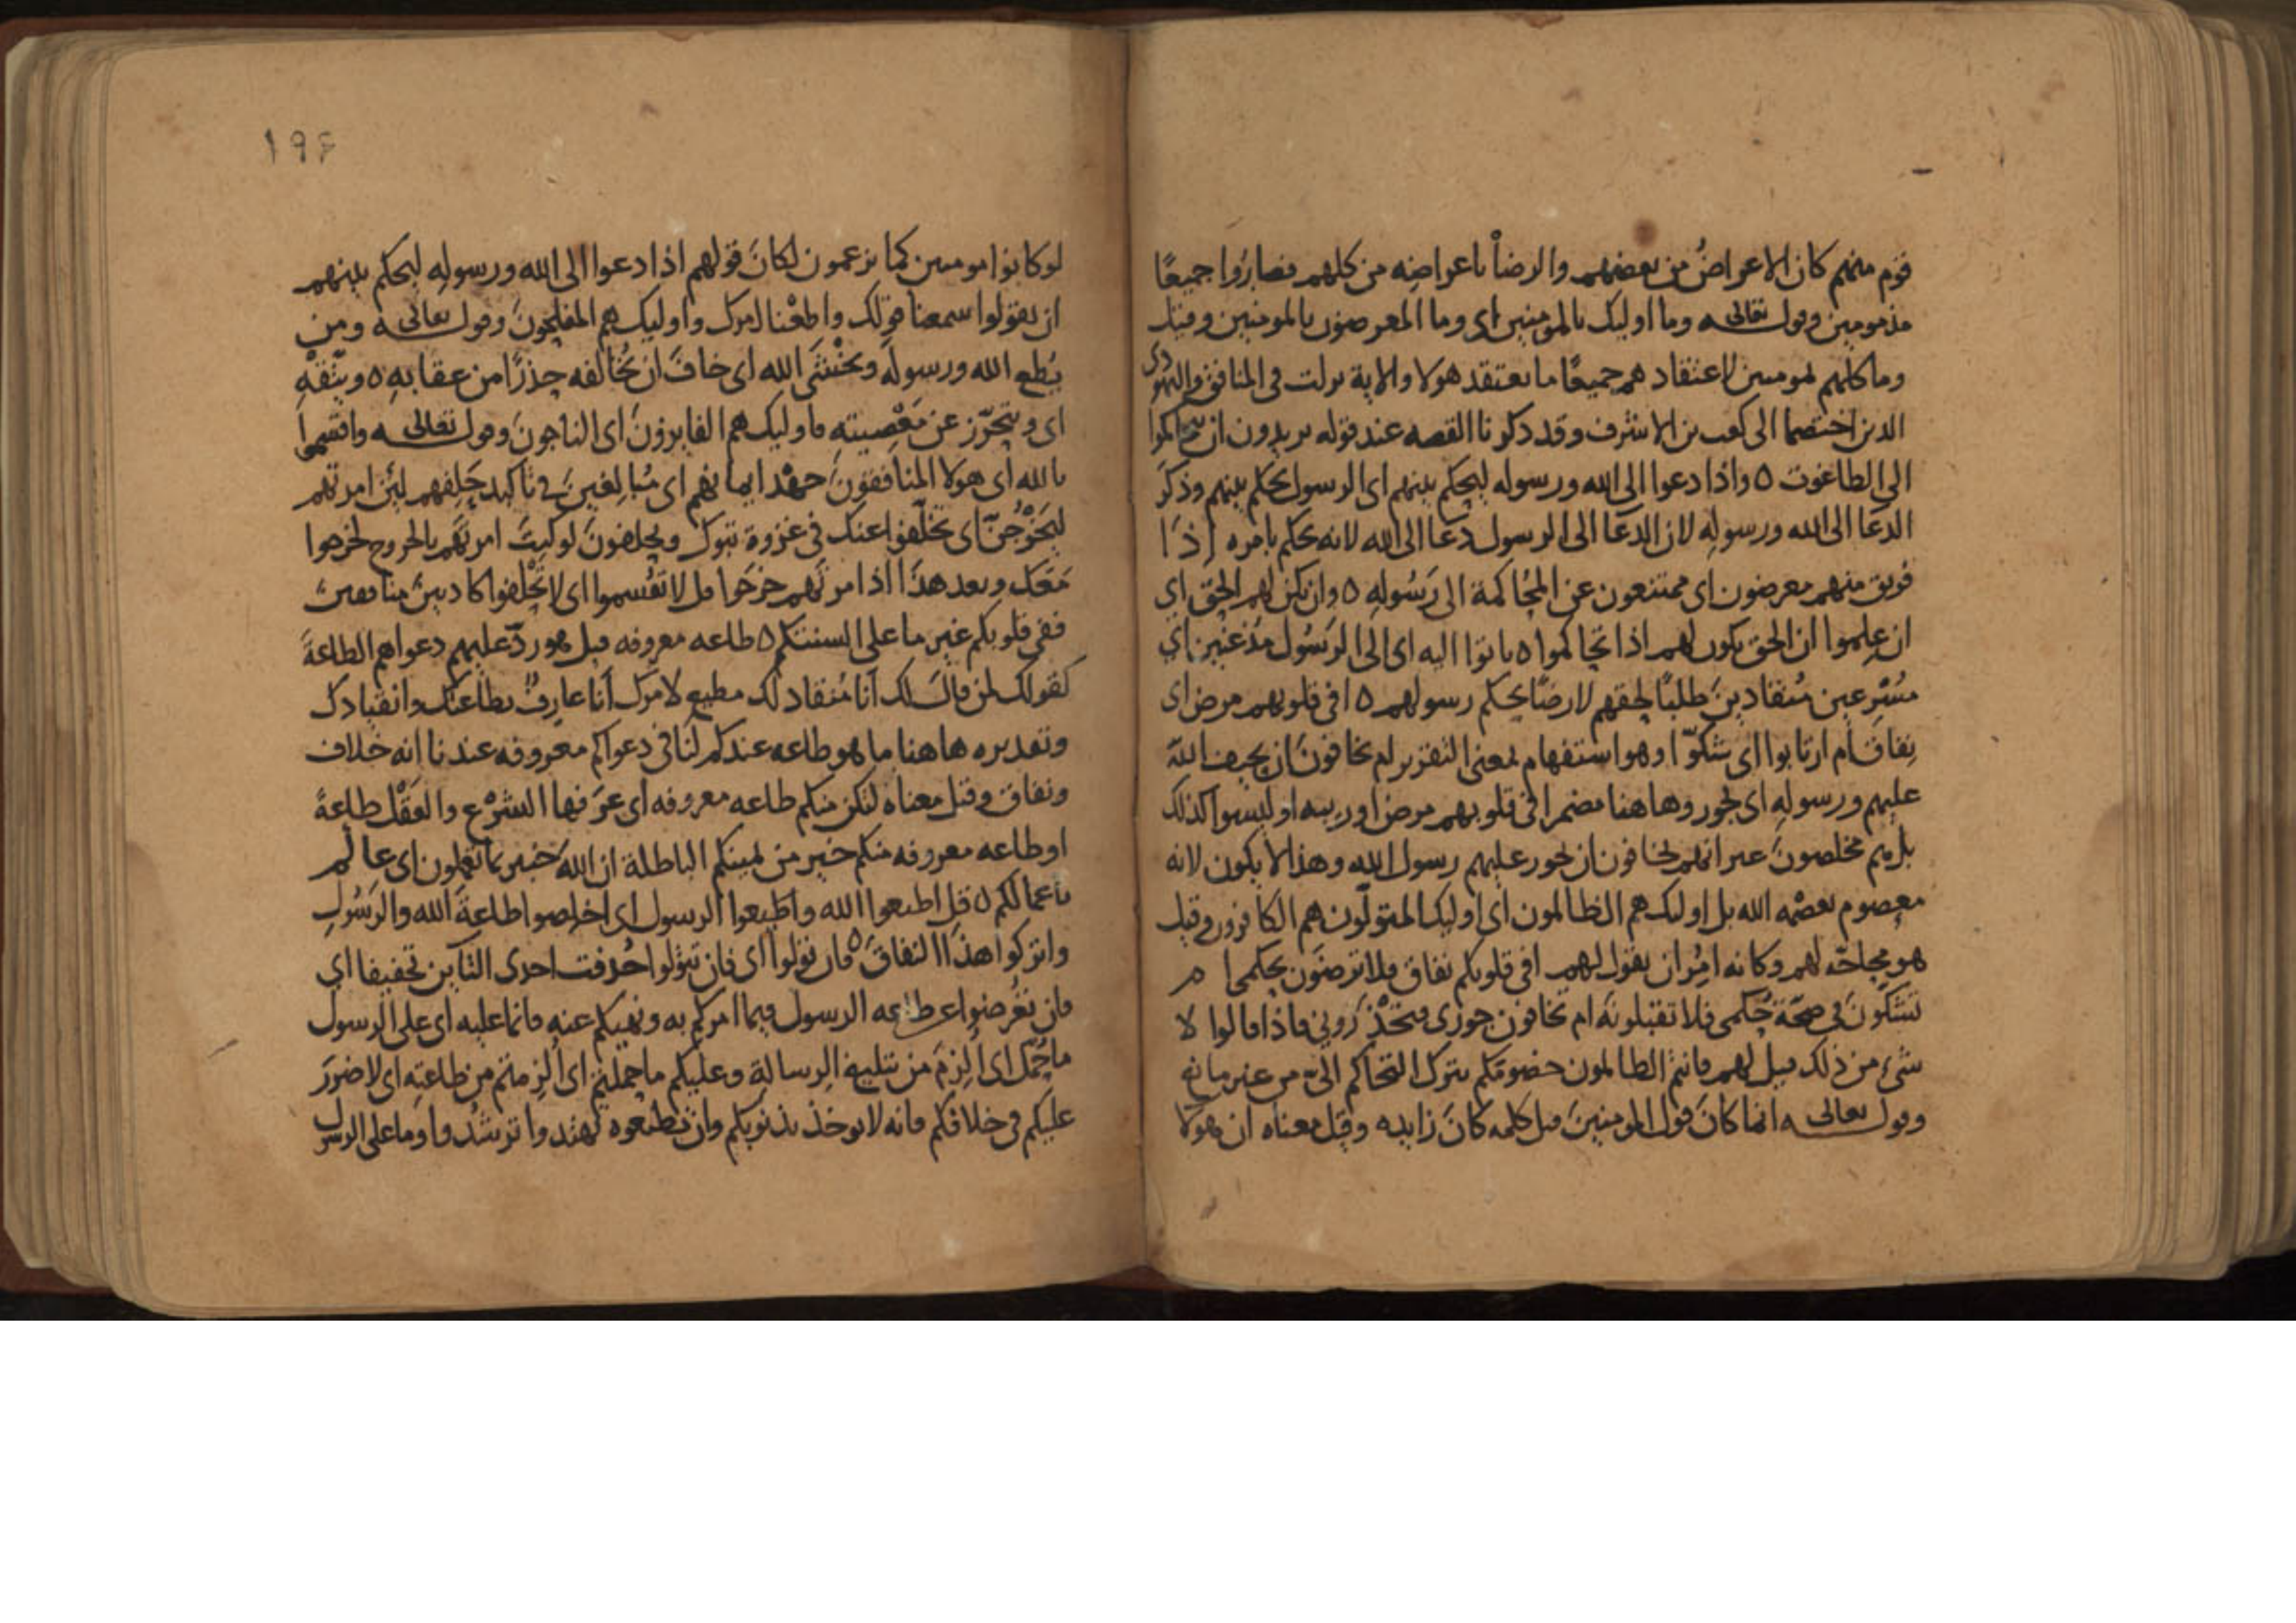 قوم منهم كان الاعراضُ من بعضهم والرضأ باعراضِه من كلهم فصارُوا جميعًا
مذمومين وقوله تعالى وما اوليك بالمومنين اى وما المعرضون بالمومنين وقيل
وما كلهم بمومنين لاعتقادهم جميعًا ما يعتقد هولا والاية نزلت فى المنافق واليهودى
الذين اختصما الى كعب بن الاشرف وقد ذكرنا القصه عند قوله يريدون ان يتحاكموا
الى الطاغوت ٥ واذا دعوا الى الله ورسوله ليحكم بينهم اى الرسول يحكم بينهم وذكرَ
الدعَا الى الله ورسولِه لان الدعَا الى الرسول دعَا الى الله لانه يحكم بامره اِذَا
فريق منهم معرضون اى ممتنعون عن المحُاكمة الى رَسُولهِ ٥ وان يكن لهم الحق اي
ان علِموا ان الحق يكون لهم اذا تحاكموا ٥ ياتوا اليه اى الى الرسُول مُذعنين اي
مسُرِعين منُقادينَ طلبًا لحقهم لا رضًا بحكم رسولهم ٥ افى قلوبهم مرض اى
نِفاق اَم ارتابوا اى شكوّا وهو استفهام بمعنى التقرير ام يخافونَ ان يحيف اللّه
عليهم ورسولهِ اى يجور وها هنا مضمر افى قلوبهم مرض او ريبه او ليسوا كذلك
بل هم مخلصونَ غير انهم يخافون ان يجور عليهم رسول الله وهذا لا يكون لانه
معصوم بعصْمه الله بل اوليك هم الظالمون اى اوليك المتوَلّون هم الكافرون وقيل
هو محاجّه لهم وكانه امُِر ان يقول لهم افى قلوبكم نفاق فلا ترضَون بحكمى ام
تشكوُّنَ فى صحّة حُكمى فلا تقبلونَه ام تخافون جورى فتحْذرَونِى فاذا قالوا لا
شىء من ذلك قيل لهم فانتم الظالمون خصومكم بترك التحاكم الىّ من غير مانع
وقوله تعالى انما كانَ قول المومنينَ قيل كلمه كانَ زايده وقيل معناه ان هولا
١٩٤
لو كانوا مومنين كما يزعمون لكانَ قولهم اذا دعوا الى الله ورسوله ليحكم بينهم
ان يقولوا سمعنا قولك واطعْنا امرك واوليك هم المفلحونَ وقوله تعالى ومن
يُطع الله ورسوله ويخْشَى الله اى خافَ ان يُخالفه حِذرًا من عقابهِ ٥ ويتّقهِْ
اى ويتحرّز عن معْصِيتهِ فاوليك هم الفايزونَ اى الناجونَ وقوله تعالى واقسموا
بالله اى هولا المنافقونَ جهْد ايمانهم اى مُبالِغينَ فى تاكيد حَلِفهم ليَن امرتهم
ليخَرُْجُنّ اى تخلّفوا عنك فى غزوة تبوك ويحلفونَ لو كنتَ امرتَهم بالخروج لخرجوا
معَك وبعد هذَا اذا امرتَهم خرَجوا قل لا تقُسموا اى لا تحْلِفوا كاذبينَ منافقينَ
ففى قلوبكم غير ما على السنتكم ٥ طاعه معروفه قيل هو ردّ عليهم دعواهم الطاعةَ
كقولك لمن قالَ لك اَنا منُقاد لك مطيع لامرك اَنا عارِفٌ بطاعتك وانقيادك
وتقديره هاهنا ما هو طاعه عندكم لنا فى دعواكم معروفه عندنا انه خلاف
ونفاق وقيل معناه لتكن منكم طاعه معروفه اى عرَفها الشرْع والعَقْل طاعةً
او طاعه معروفه منكم خير من يمينكم الباطلة ان اللهَ خبير بما تعمَلون اى عالم
باعمالكم ٥ قل اطيعوا الله واطيعوا الرسول اى اخلِصوا طاعةَ الله والرسُولِ
واتركوا هذا النفاقَ ٥ فان تولوا اى فان تتولوا حُذفت احدى التاَين تخفيفا اي
فان تُعرضوا عن طاعه الرسول فيما امركم به ونهيكم عنه فانما عليه اى على الرسول
ما حُمّل اى اُلزِمَ من تبليغ الرسالةِ وعليكم ما حملتم اى اُلزِمتم من طاعتهِ اى لا ضررَ
عليكم فى خلافكم فانه لا يوخذ بذنوبكم وان تطيعوه تهتدوا ترشُدوا وما على الرسول